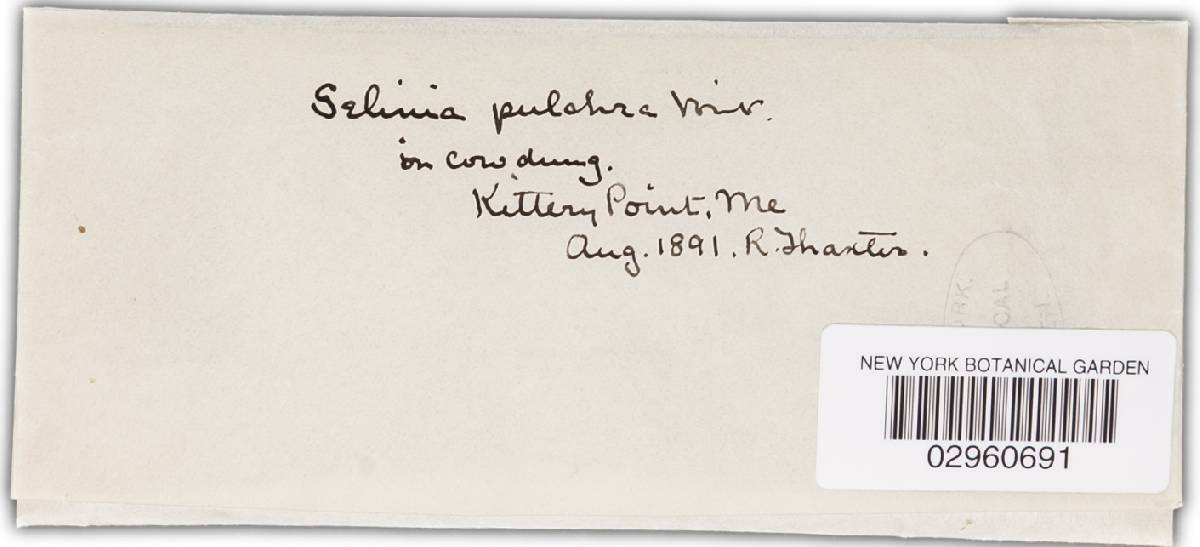 Selinia pulchra
on cow dung.
Kittery Point, Me
Aug. 1891. R. Thaxter.
RK.
CAL
NEW YORK BOTANICAL GARDEN
02960691